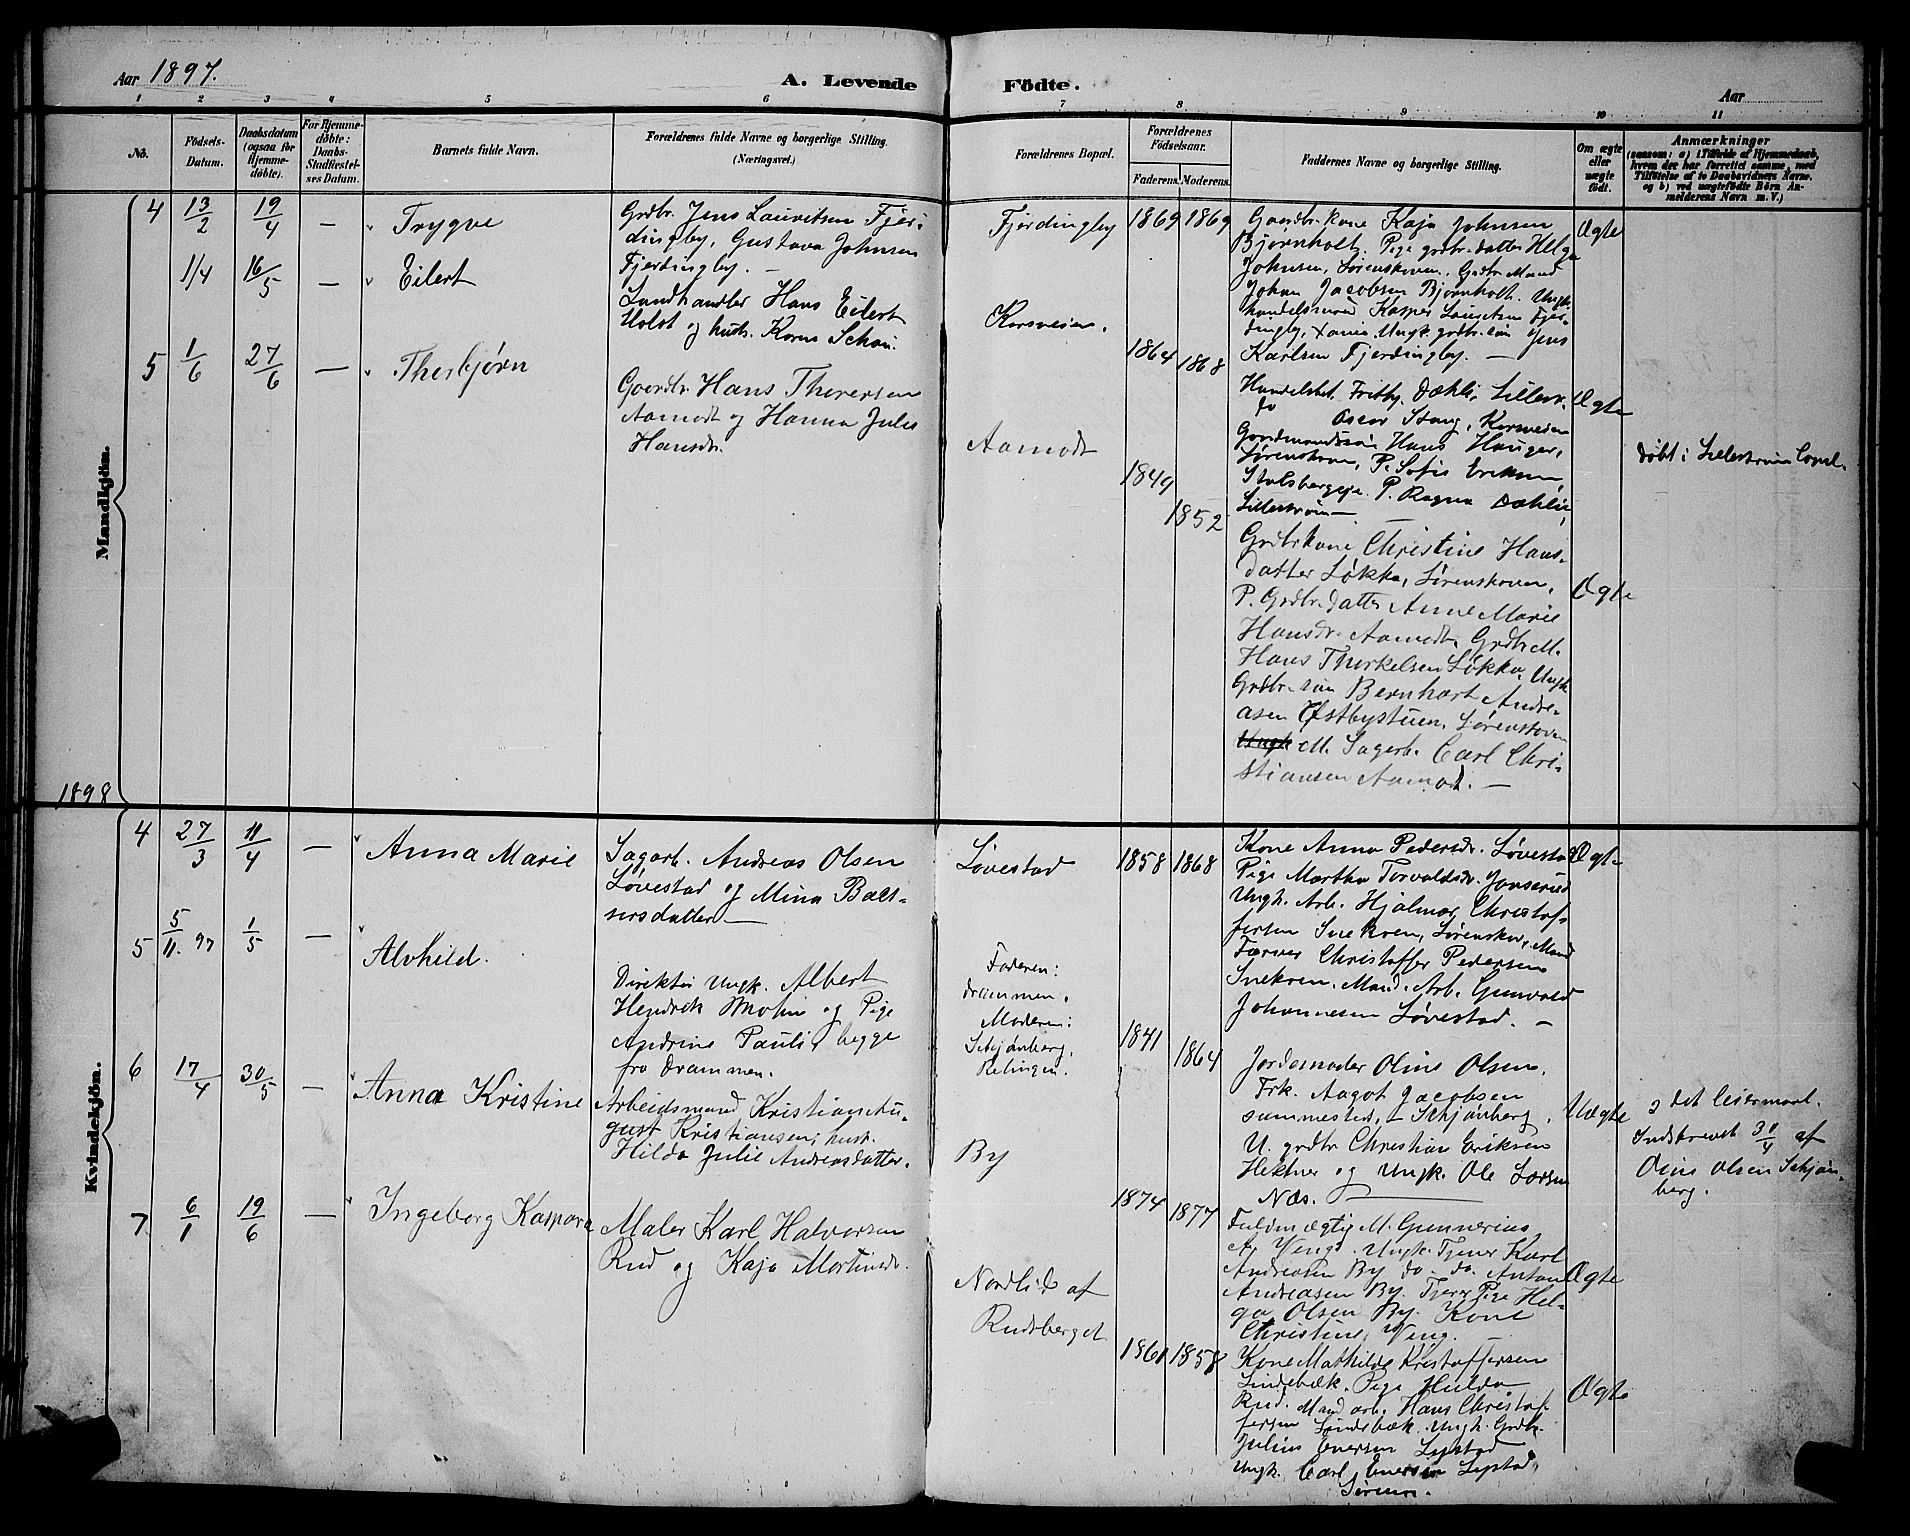 Aar 1897.
A. Levende Födte.
Aar
1 2 3 4 5 6 7 8 9 10 11
No.
Födsels-
Datum.
Daabsdatum
(ogsaa for
Hjemme-
døbte).
For Hjemme-
døbte:
Daabs-
Stadfæstel-
ses Datum.
Barnets fulde Navn.
Forældrenes fulde Navne og borgerlige Stilling.
(Næringsvei.)
Forældrenes Bopæl.
Forældrenes
Födselsaar.
Faderens. Moderens.
Faddernes Navne og borgerlige Stilling.
Om ægte
eller
uægte
født.
Anmærkninger
(saasom: a) i Tilfælde af Hjemmedaab,
hvem der har forrettet samme, med
Tilföielse af to Daabsvidners Navne,
og b) ved uægtefödte Börn An-
melderens Navn m. V.)
Mandkjön.
4 13/2 19/4 — Trygve
Grdbr. Jens Lauritsen Fjer-
dingby, Gustava Johnsen
Fjerdingby. —
Fjerdingby 1869 1869
Gaardbr.kone Kaja Johnsen
Bjørnholt, Pige grdbr.datter Helga
Johnsen, Lørenskoven. Grdbr. Mand
Johan Jacobsen Bjørnholt. Ungk.
handelsmand Kasper Lauritsen Fjer-
dingby, Xania. Ungk. grdbr. søn Jens
Karlsen Fjerdingby. —
Ægte
1/4 16/5 — Eilert
Landhandler Hans Eilert
Holst og hustr. Karen Schou.
Korsveien.
1864 1868
Handelsbet. Frithj. Dæhli, Lillestr.
do Oscar Stang, Korsveien
Gaardmandssøn Hans Hauger,
Lørenskoven, P. Sofie Eriksen,
Stalsbergeje. P. Ragna Dæhlie,
Lillestrøm —
Ægte
døbt i Lillestrøm Capel.
5 1/6 27/6 — Thorbjørn
Gaardbr. Hans Thoresen
Aamodt og Hanna Julie
Hansdr.
Aamodt
1849 1852
Grdbrkone Christine Hans-
datter Løkka, Lørenskoven,
P. Grdbr.datter Anne Marie
Hansdr. Aamodt, Grdbr. M.
Hans Thorkelsen Løkka, Ungk.
Grdbr. søn Bernhart Andre-
asen Østbystuen, Lørenskoven
Ungk. M. Sagarb. Carl Chri-
stiansen Aamodt. —
Ægte
1898
Kvindekjön.
4 27/3 11/4 — Anna Marie
Sagarb. Andreas Olsen
Løvestad og Mina Balt-
sersdatter —
Løvestad 1858 1868
Kone Anna Pedersdr. Løvestad
Pige Martha Torvaldsdr. Jonsrud
Ungk. Arb. Hjalmar Christof-
fersen Snekren, Lørenskov, Mand
Farver Christoffer Pedersen
Snekren. Mand. Arb. Gunvald
Johannesen Løvestad. —
Ægte
5 5/11. 97 1/5 — Alvhild.
Direktør Ungk. Albert
Hendrik Mohn og Pige
Andrine Pauli, begge
fra Drammen.
Faderen:
Drammen.
Moderen:
Schjønberg,
Relingen.
1841 1864
Jordemoder Oline Olsen.
Frk. Aagot Jacobsen
sammesteds, — Schjønberg.
U. grdbr. Christian Eriksen
Hektner og Ungk. Ole Larsen
Næs. —
Uægte
2 det leiermaal.
Indskrevet 30/4 af
Oline Olsen Schjøn-
berg.
6 17/4 30/5 — Anna Kristine
Arbeidsmand Kristian Au-
gust Kristiansen; hust.
Hilda Julie Andreasdatter.
By
1874 1877
Fuldmægtig M. Gunnerius
A. Weng. Ungk. Tjener Karl
Andreasen By do. do. Anton
Andreasen By. Tjener Pige Hel-
ga Olsen By. Kone
Christine Weng.
Ægte
7. 6/1 19/6 — Ingeborg Kaspara
Maler Karl Halvorsen
Rud og Kaja Martinsdr.
Nordlid af
Rudsberget
1861 1858
Kone Mathilde Kristoffersen
Lindebæk. Pige Hulda
Rud. Mand arb. Hans Christof-
fersen Lindebæk. Ungk. Grdbr.
Julius Eversen Lystad
Ungk. Carl Eversen Lystad,
Ægte